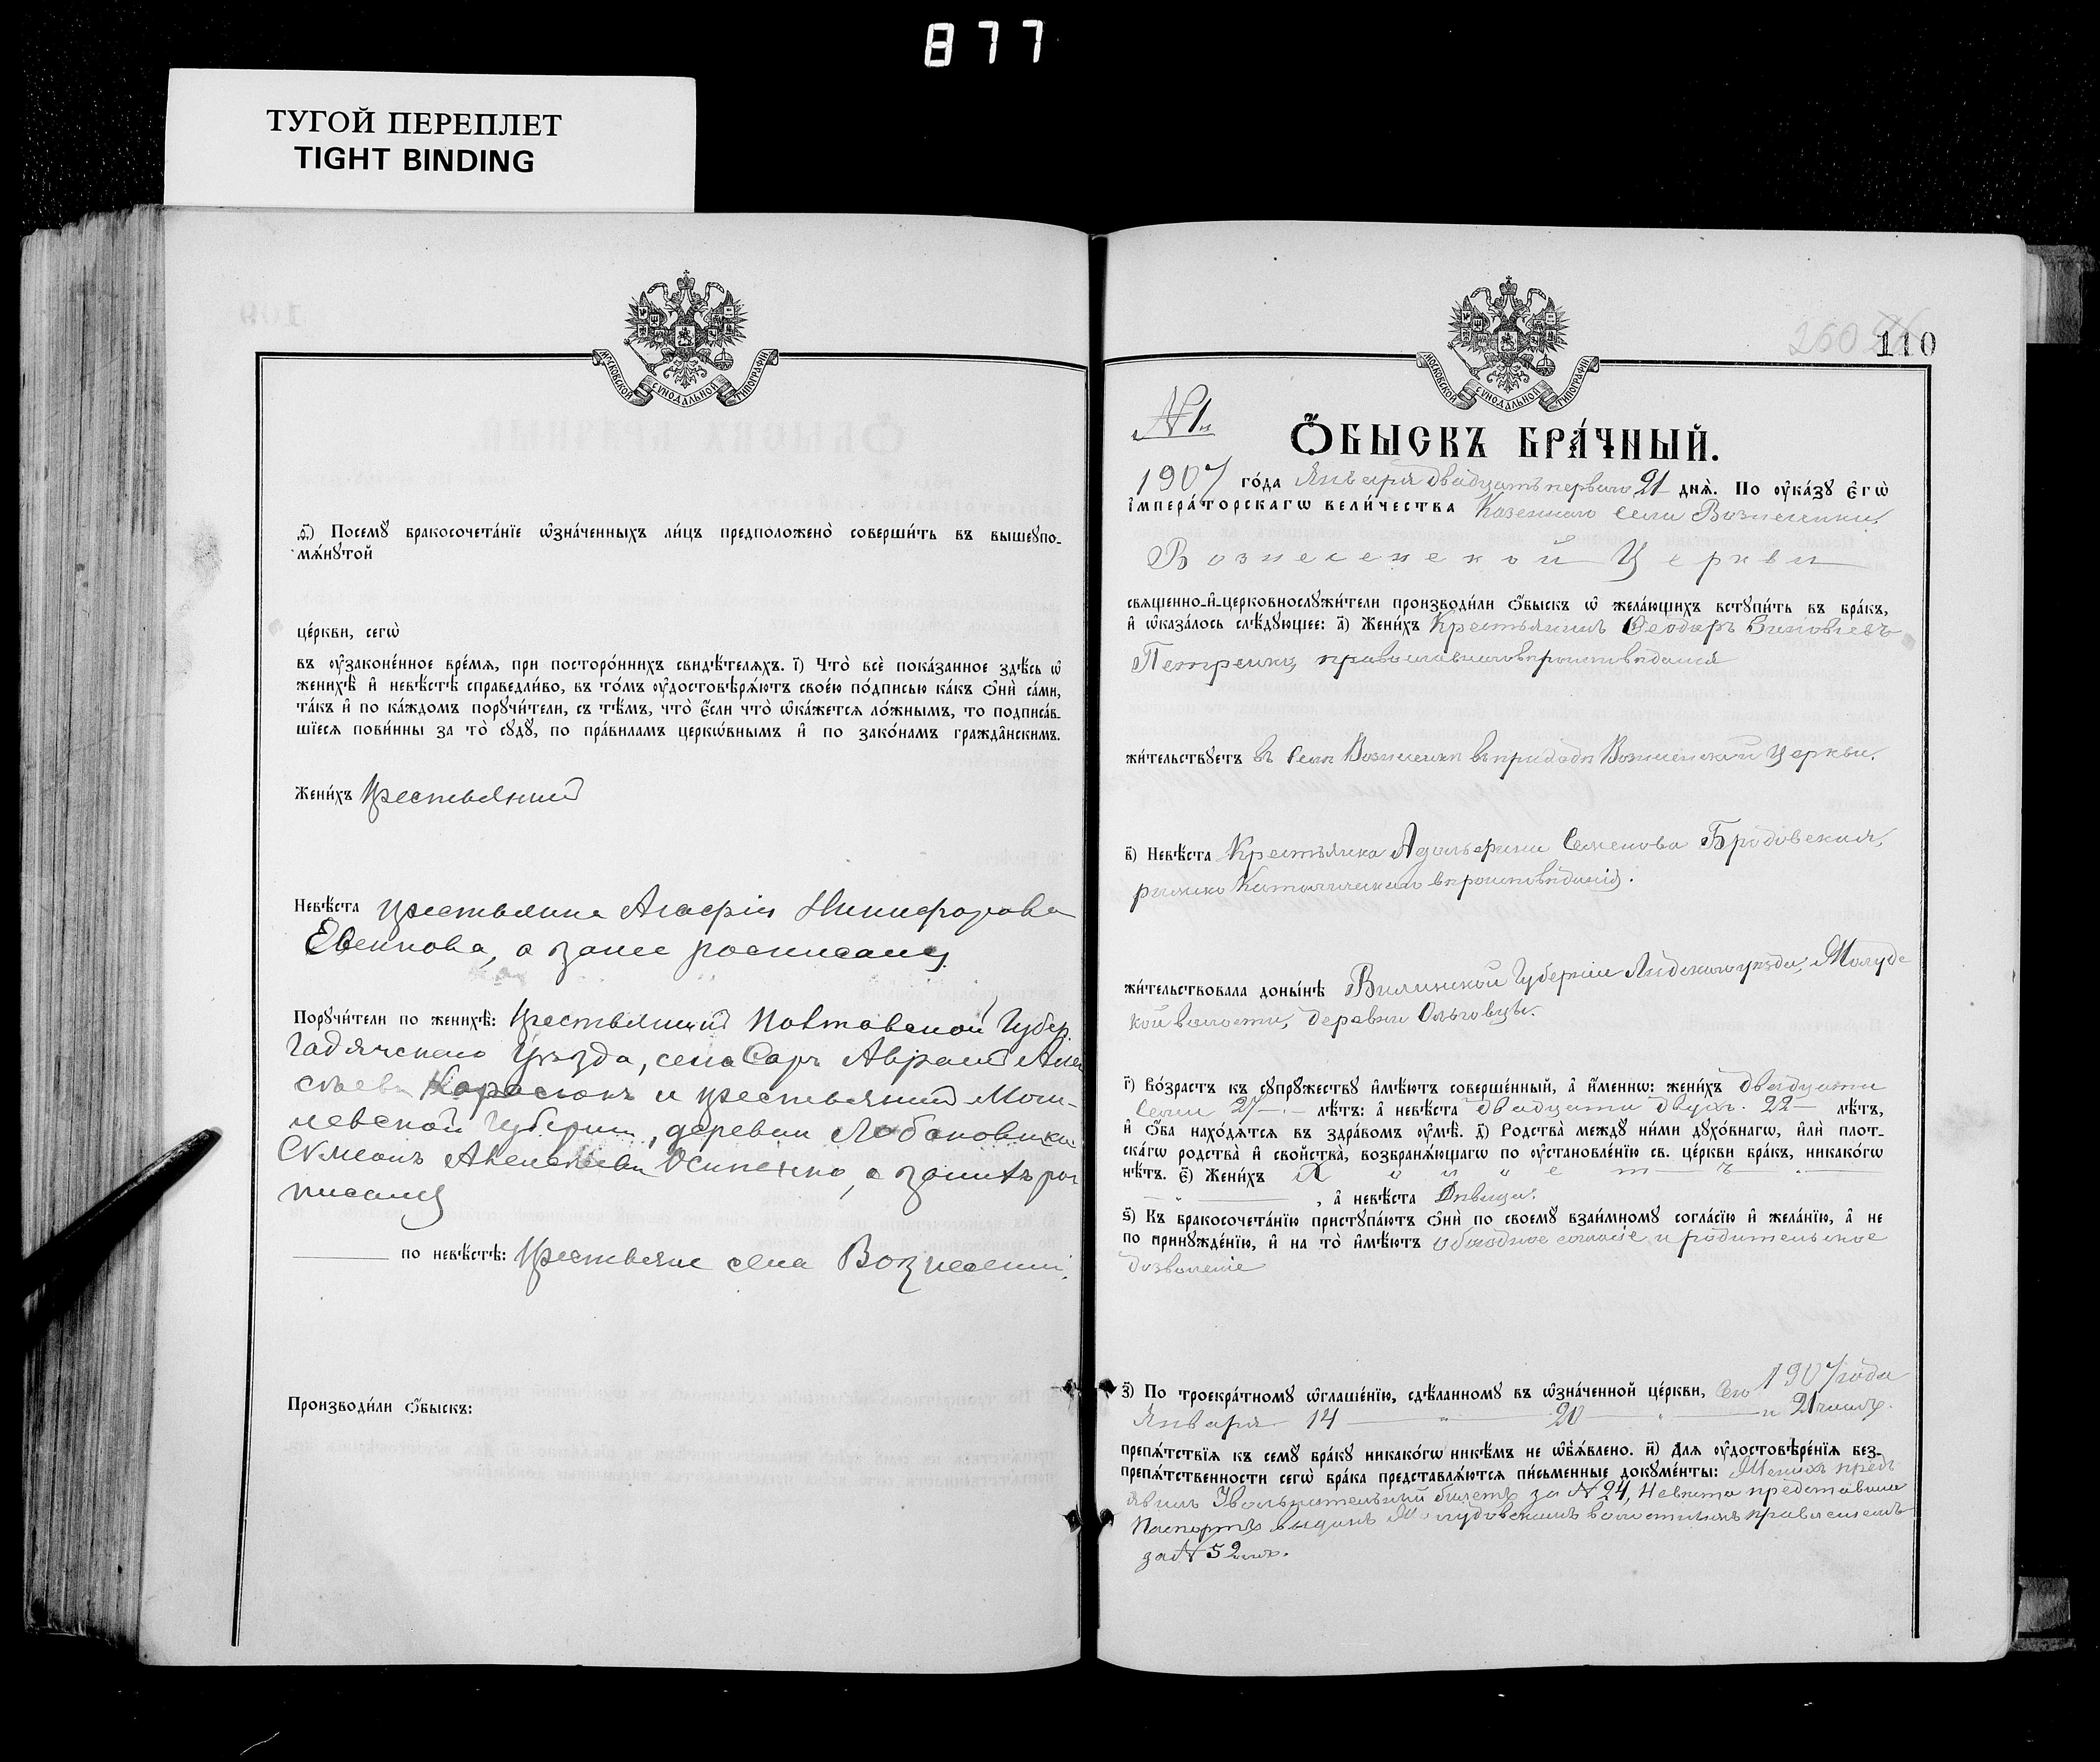 877
ТУГОЙ ПЕРЕПЛЕТ
TIGHT BINDING
МОСКОВСКОЙ СУНОДАЛЬНОЙ ТИПОГРАФІИ
ѳ҃) Посемꙋ бракосочета́нїе ѡ҆зна́ченныхъ ли́цъ предположено̀ соверши́ть въ вышеꙋпо-
мѧ́нꙋтой
це́ркви, сегѡ̀
въ ᲂу҆законе́нное вре́мѧ, при посторо́ннихъ свидѣ́телѧхъ. і҃) Что̀ всѐ пока́занное здѣ́сь ѡ҆
женихѣ̀ и҆ невѣ́стѣ справедли́во, въ то́мъ ᲂу҆достовѣрѧ́ютъ свое́ю по́дписью ка́къ ѻ҆нѝ са́ми,
та́къ и҆ по ка́ждомъ порꙋчи́тели, съ тѣ́мъ, что̀ є҆́сли что̀ ѡ҆ка́жетсѧ ло́жнымъ, то подписа́в-
шїесѧ пови́нны за то̀ сꙋдꙋ̀, по пра́виламъ церкѡ́внымъ и҆ по зако́намъ гражда̑нскимъ.
Жени́хъ Крестьянинъ
Невѣ́ста крестьянина Агафія Никифорова
Евсикова, а занее росписался
Порꙋчи́тели по женихѣ̀: Крестьянинъ Полтавской Губер.
Гадячскаго Уѣзда, села Саръ Аврамъ Але
сѣевъ Карасюкъ и крестьянинъ Моги-
левской Губерніи, деревни Лобановки
Сѵмеонъ Алексѣевъ Осипенко, а занихъ рос
писался
по невѣ́стѣ: Крестьяне села Вознесенки.
Производи́ли ѻ҆́быскъ:
МОСКОВСКОЙ СУНОДАЛЬНОЙ ТИПОГРАФІИ
260
110
№ 1й
Ѻ҆́БЫСКЪ БРА́ЧНЫЙ.
1907 го́да Января двадцать перваго 21 днѧ̀. По ᲂу҆ка́зꙋ є҆гѡ̀
і҆мпера́торскагѡ вели́чества Казеннаго села Вознесенки,
Вознесенской Церкви
свѧщенно-и҆-церковнослꙋжи́тели производи́ли ѻ҆́быскъ ѡ҆ жела́ющихъ встꙋпи́ть въ бра́къ,
и҆ ѡ҆каза́лось слѣ́дꙋющее: а҃) Жени́хъ Крестьянинъ Ѳеодоръ Зиновіевъ
Петренко, православнаго вѣроисповѣданія
жи́тельствꙋетъ въ Селѣ Вознесенкѣ въ приходѣ Вознесенской Церкви.
в҃) Невѣ́ста Крестьянка Семенова Бродовская,
римско Католическаго вѣроисповѣданія.
жи́тельствовала доны́нѣ Виленской Губерніи Лидскаго уѣзда,
кой волости, деревни Ольговцы.
г҃) Во́зрастъ къ сꙋпрꙋ́жествꙋ и҆мѣ́ютъ соверше́нный, а҆ и҆́меннѡ: жени́хъ двадцати
Семи 27 лѣ́тъ: а҆ невѣ́ста двадцати двухъ. 22 лѣ́тъ,
и҆ ѻ҆́ба нахо́дѧтсѧ въ здра́вомъ ᲂу҆мѣ̀. д҃) Родства̀ междꙋ ни́ми дꙋхо́внагѡ, и҆лѝ плот-
ска́гѡ родства̀ и҆ сво́йства, возбранѧ́ющагѡ по ᲂу҆становле́нїю св. це́ркви бра́къ, никако́гѡ
нѣ́тъ. є҃) Жени́хъ
, а҆ невѣ́ста Дѣвица.
ѕ҃) Къ бракосочета́нїю пристꙋпа́ютъ ѻ҆нѝ по своемꙋ̀ взаи́мномꙋ согла́сїю и҆ жела́нїю, а҆ не
по принꙋжде́нїю, и҆ на то̀ и҆мѣ́ютъ обоюдное согласіе и родительское
дозволеніе
з҃) По троекра́тномꙋ ѡ҆глаше́нїю, сдѣ́ланномꙋ въ ѡ҆зна́ченной це́ркви, Сего 1907 года
Января 14 20 и 21 чиселъ.
препѧ́тствїѧ къ семꙋ̀ бра́кꙋ никако́гѡ никѣ́мъ не ѡ҆б̾ѧ́влено. и҃) Длѧ ᲂу҆достовѣре́нїѧ без-
препѧ́тственности сегѡ̀ бра́ка представлѧ́ютсѧ пи́сьменные докꙋме́нты: Женихъ предъ
явилъ Увольнительный билетъ за № 24, Невѣста представила
Паспортъ выданъ волостнымъ правленіемъ
за № 52